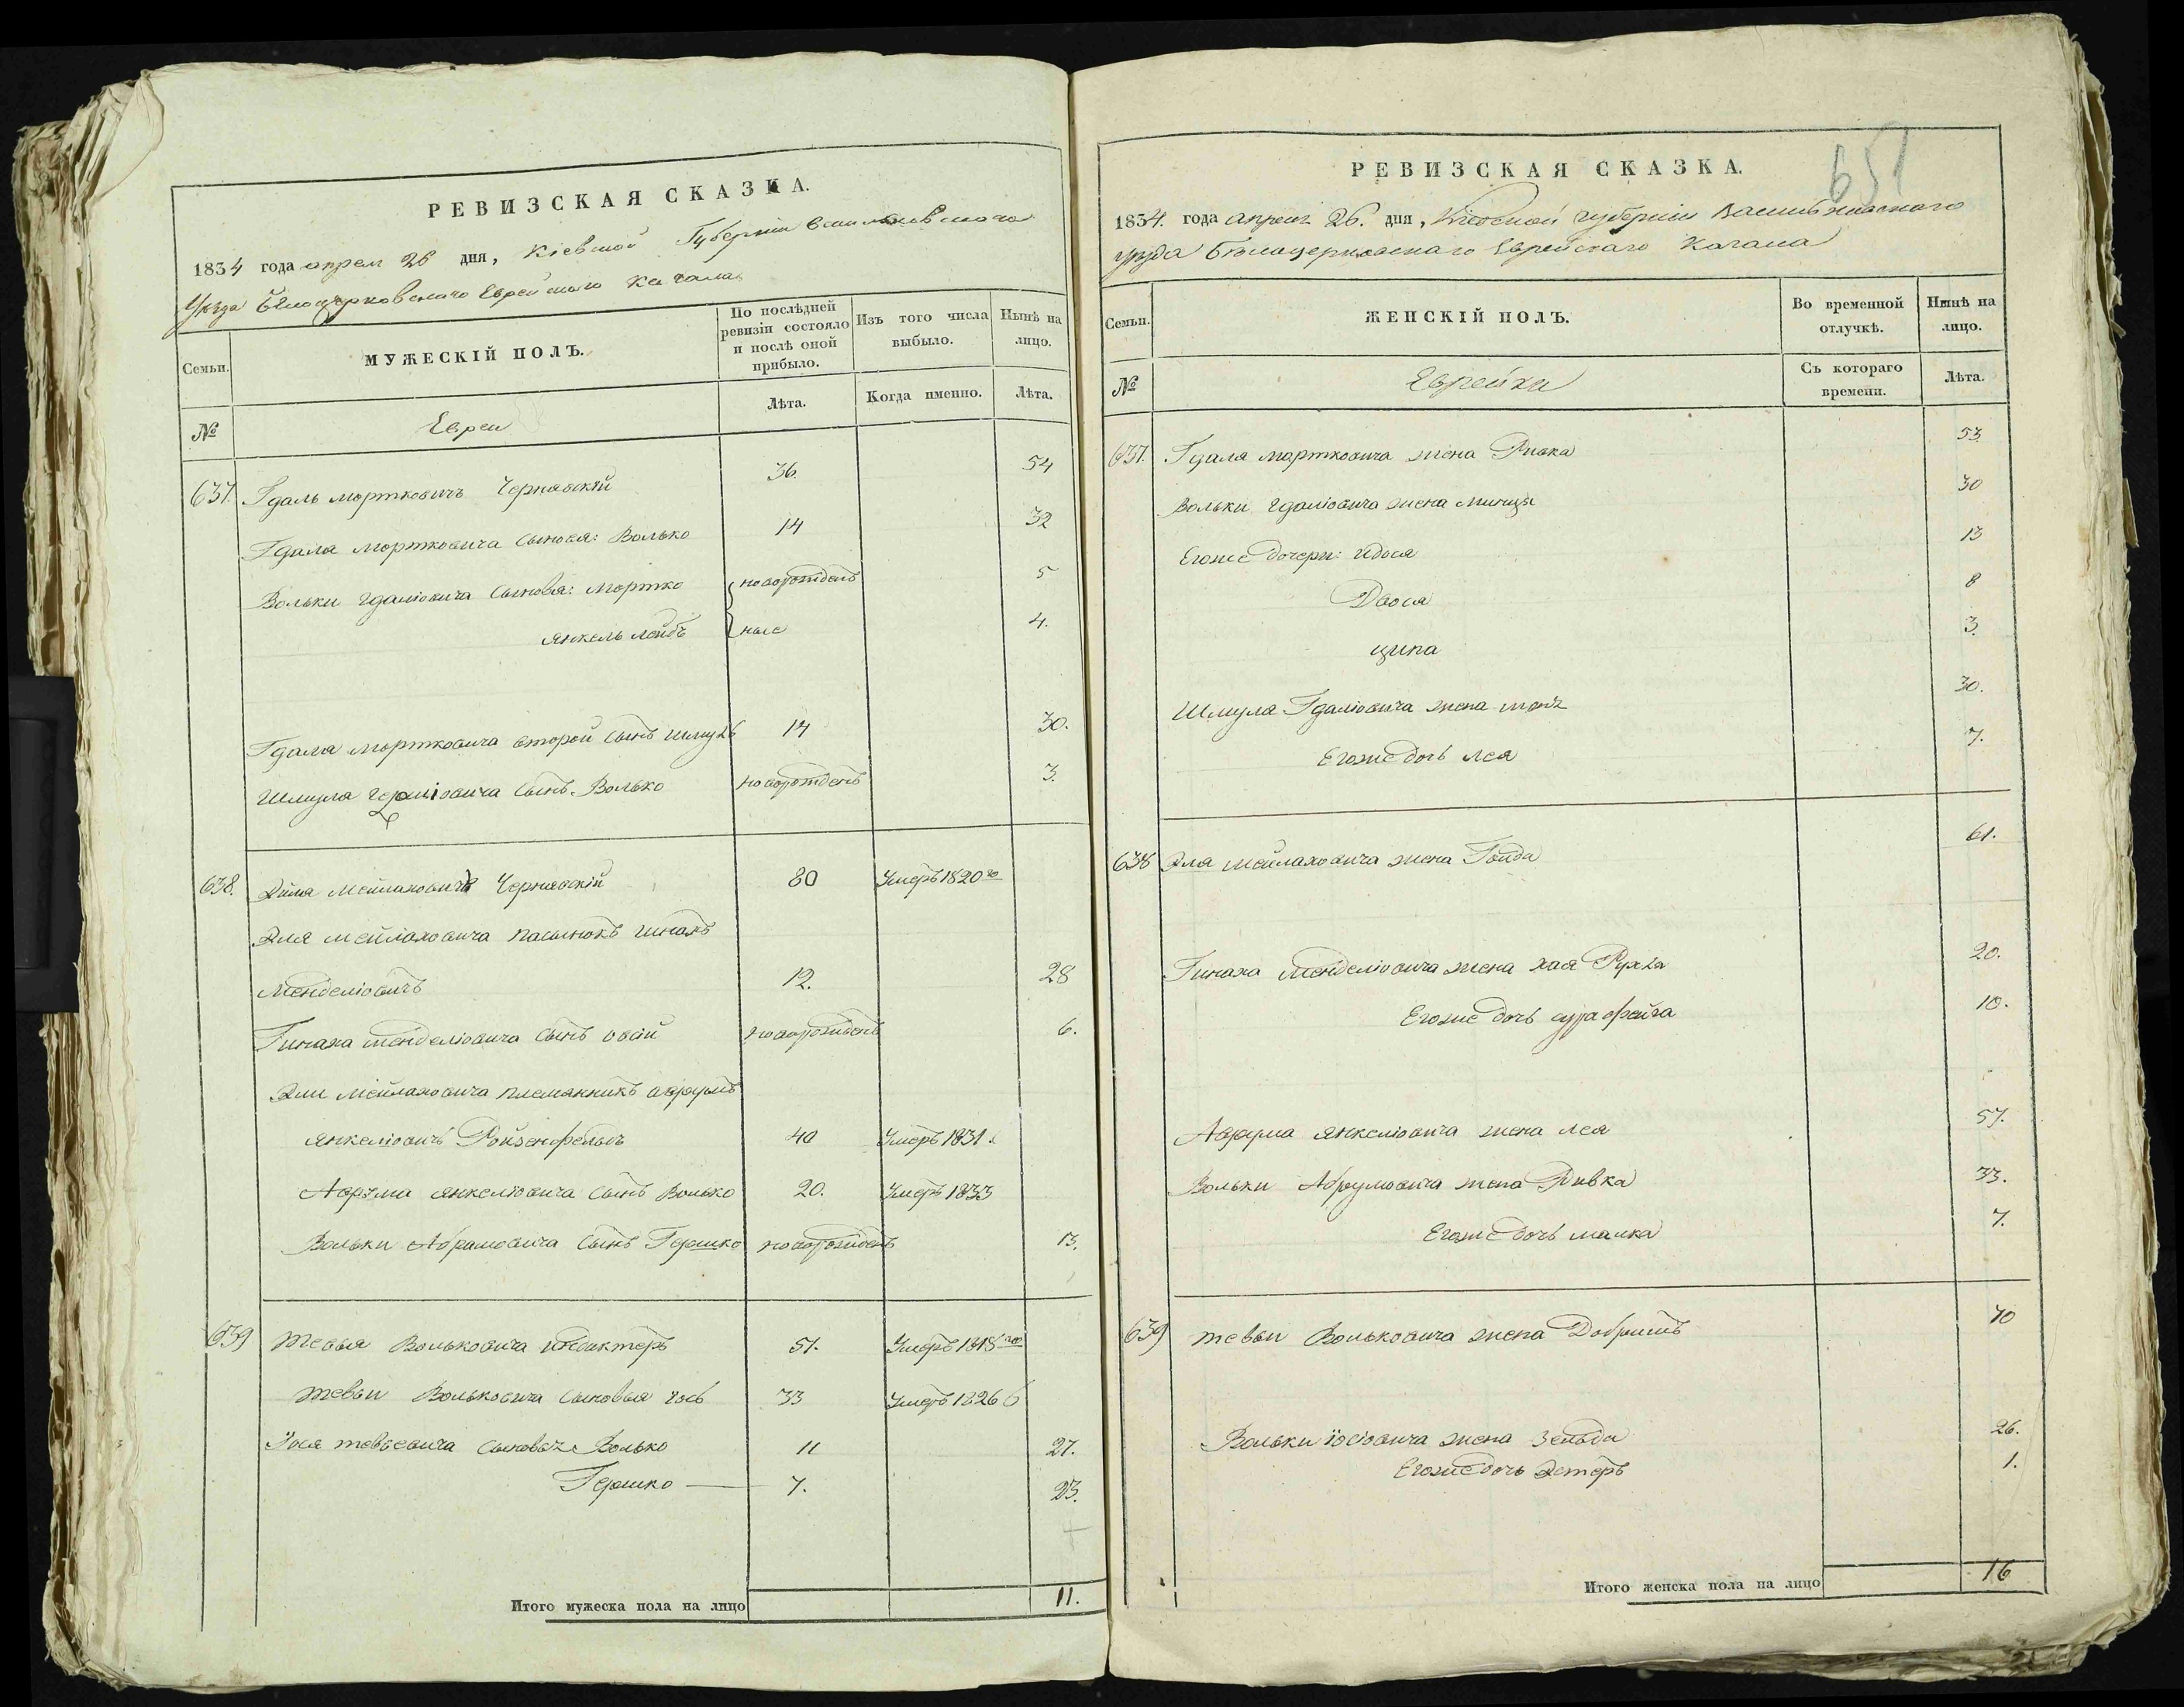 РЕВИЗСКАЯ СКАЗКА.
1834 года апреля 26 дня, Кіевской Губерніи Васильковскаго
Уѣзда Бѣлоцерковскаго Еврейскаго Кагала
Семьи.
МУЖЕСКІЙ ПОЛЪ.
По послѣдней ревизіи состояло и послѣ оной прибыло.
Изъ того числа выбыло.
Нынѣ на лицо.
№
Евреи
Лѣта.
Когда именно.
Лѣта.
637. Гдаль Мортковичъ Чернявскій 36. 54
Гдаля Мортковича сыновя: Волько 14 32
Вольки Гдаліовича сыновя: Мортко новорожден 5
Янкель Лейбъ ные 4.
Гдаля Мортковича второй сынъ Шмуль 14 30.
Шмуля Гдаліовича сынъ Волько новорожденъ 3.
638. Эйля Мейлаховичъ Чернявскій 80 Умеръ 1820го
Эля Мейлаховича пасынокъ Гинахъ
Менделіовичъ 12. 28
Гинаха Менделіовича сынъ Овсій новорожденъ 6.
Эли Мейлаховича племянникъ Аврумъ
Янкеліовичъ Ройзенфельдъ 40 Умеръ 1831
Аврума Янкеліовича сынъ Волько 20. Умеръ 1833
Вольки Абрамовича сынъ Гершко новорожденъ 13.
639 Тевья Вольковича Индиктеръ 51. Умеръ 1818го
Тевьи Вольковича сыновья Іось 33 Умеръ 1826
Іося Тевьевича сыновья Волько 11 27.
Гершко 7. 23.
Итого мужеска пола на лицо 11.
651
РЕВИЗСКАЯ СКАЗКА.
1834. года апреля 26. дня, Кіевской губерніи Васильковскаго
уѣзда Бѣлацерковскаго Еврейскаго Кагала
Семьи.
ЖЕНСКІЙ ПОЛЪ.
Во временной отлучкѣ.
Нынѣ на лицо.
№
Еврейки
Съ котораго времени.
Лѣта.
637. Гдаля Мортковича жена Ривка 53
Вольки Гдаліовича жена Минця 30
Егоже дочери: Идося 13
Двося 8
Ципа 3.
Шмуля Гдаліовича жена 30.
Егоже дочь Лея 7.
638 Эля Мейлаховича жена Гойда 61.
Гинаха Менделіовича жена Хая Рухля 20.
Егоже дочь Сура Фейга 10.
Аврума Янкеліовича жена Лея 57.
Вольки Абрумовича жена Ривка 33.
Егоже дочь Малка 7.
639 Тевьи Вольковича жена Добришъ 70
Вольки Іосіовича жена Зельда 26.
Егоже дочь Эстеръ 1.
Итого женска пола на лицо 16